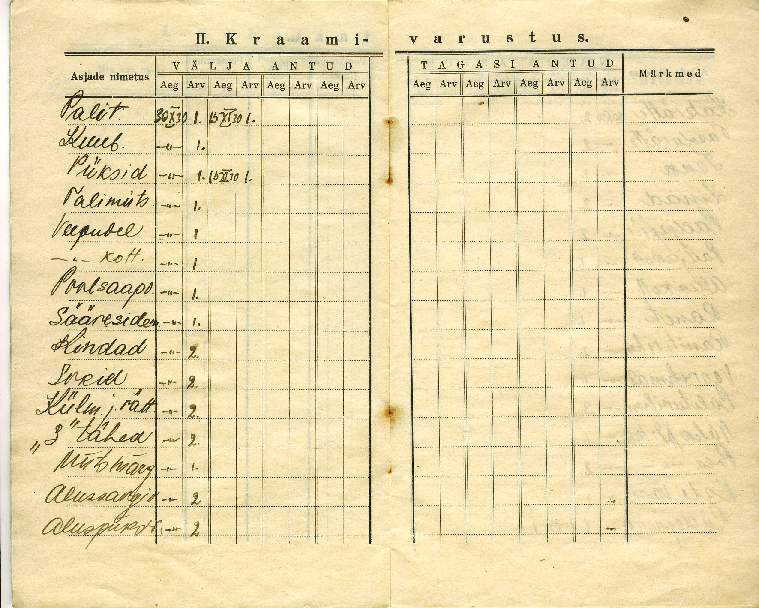 II. Kraami-varustus.
Asjade nimetus VÄLJA ANTUD TAGASI ANTUD Märkmed
Aeg Arv Aeg Arv Aeg Arv Aeg Arv Aeg Arv Aeg Arv Aeg Arv Aeg Arv
Palit. 30 XI 30 1. 15 XI 30 1.
Kuub. -"- 1.
Püksid -"- 1. 15 XI 30 1.
Talimüts -"- 1
Veepudel -"- 1
-"- kott. -"- 1
Poolsaapa -"- 1.
Sääresidem -"- 1.
Kindad -"- 2.
Sokid -"- 2.
Külm. j. rätt -"- 2.
„3" tähed -"- 2.
Mütsi märg -"- 1.
Alussärgid -"- 2
Aluspüksid -"- 2